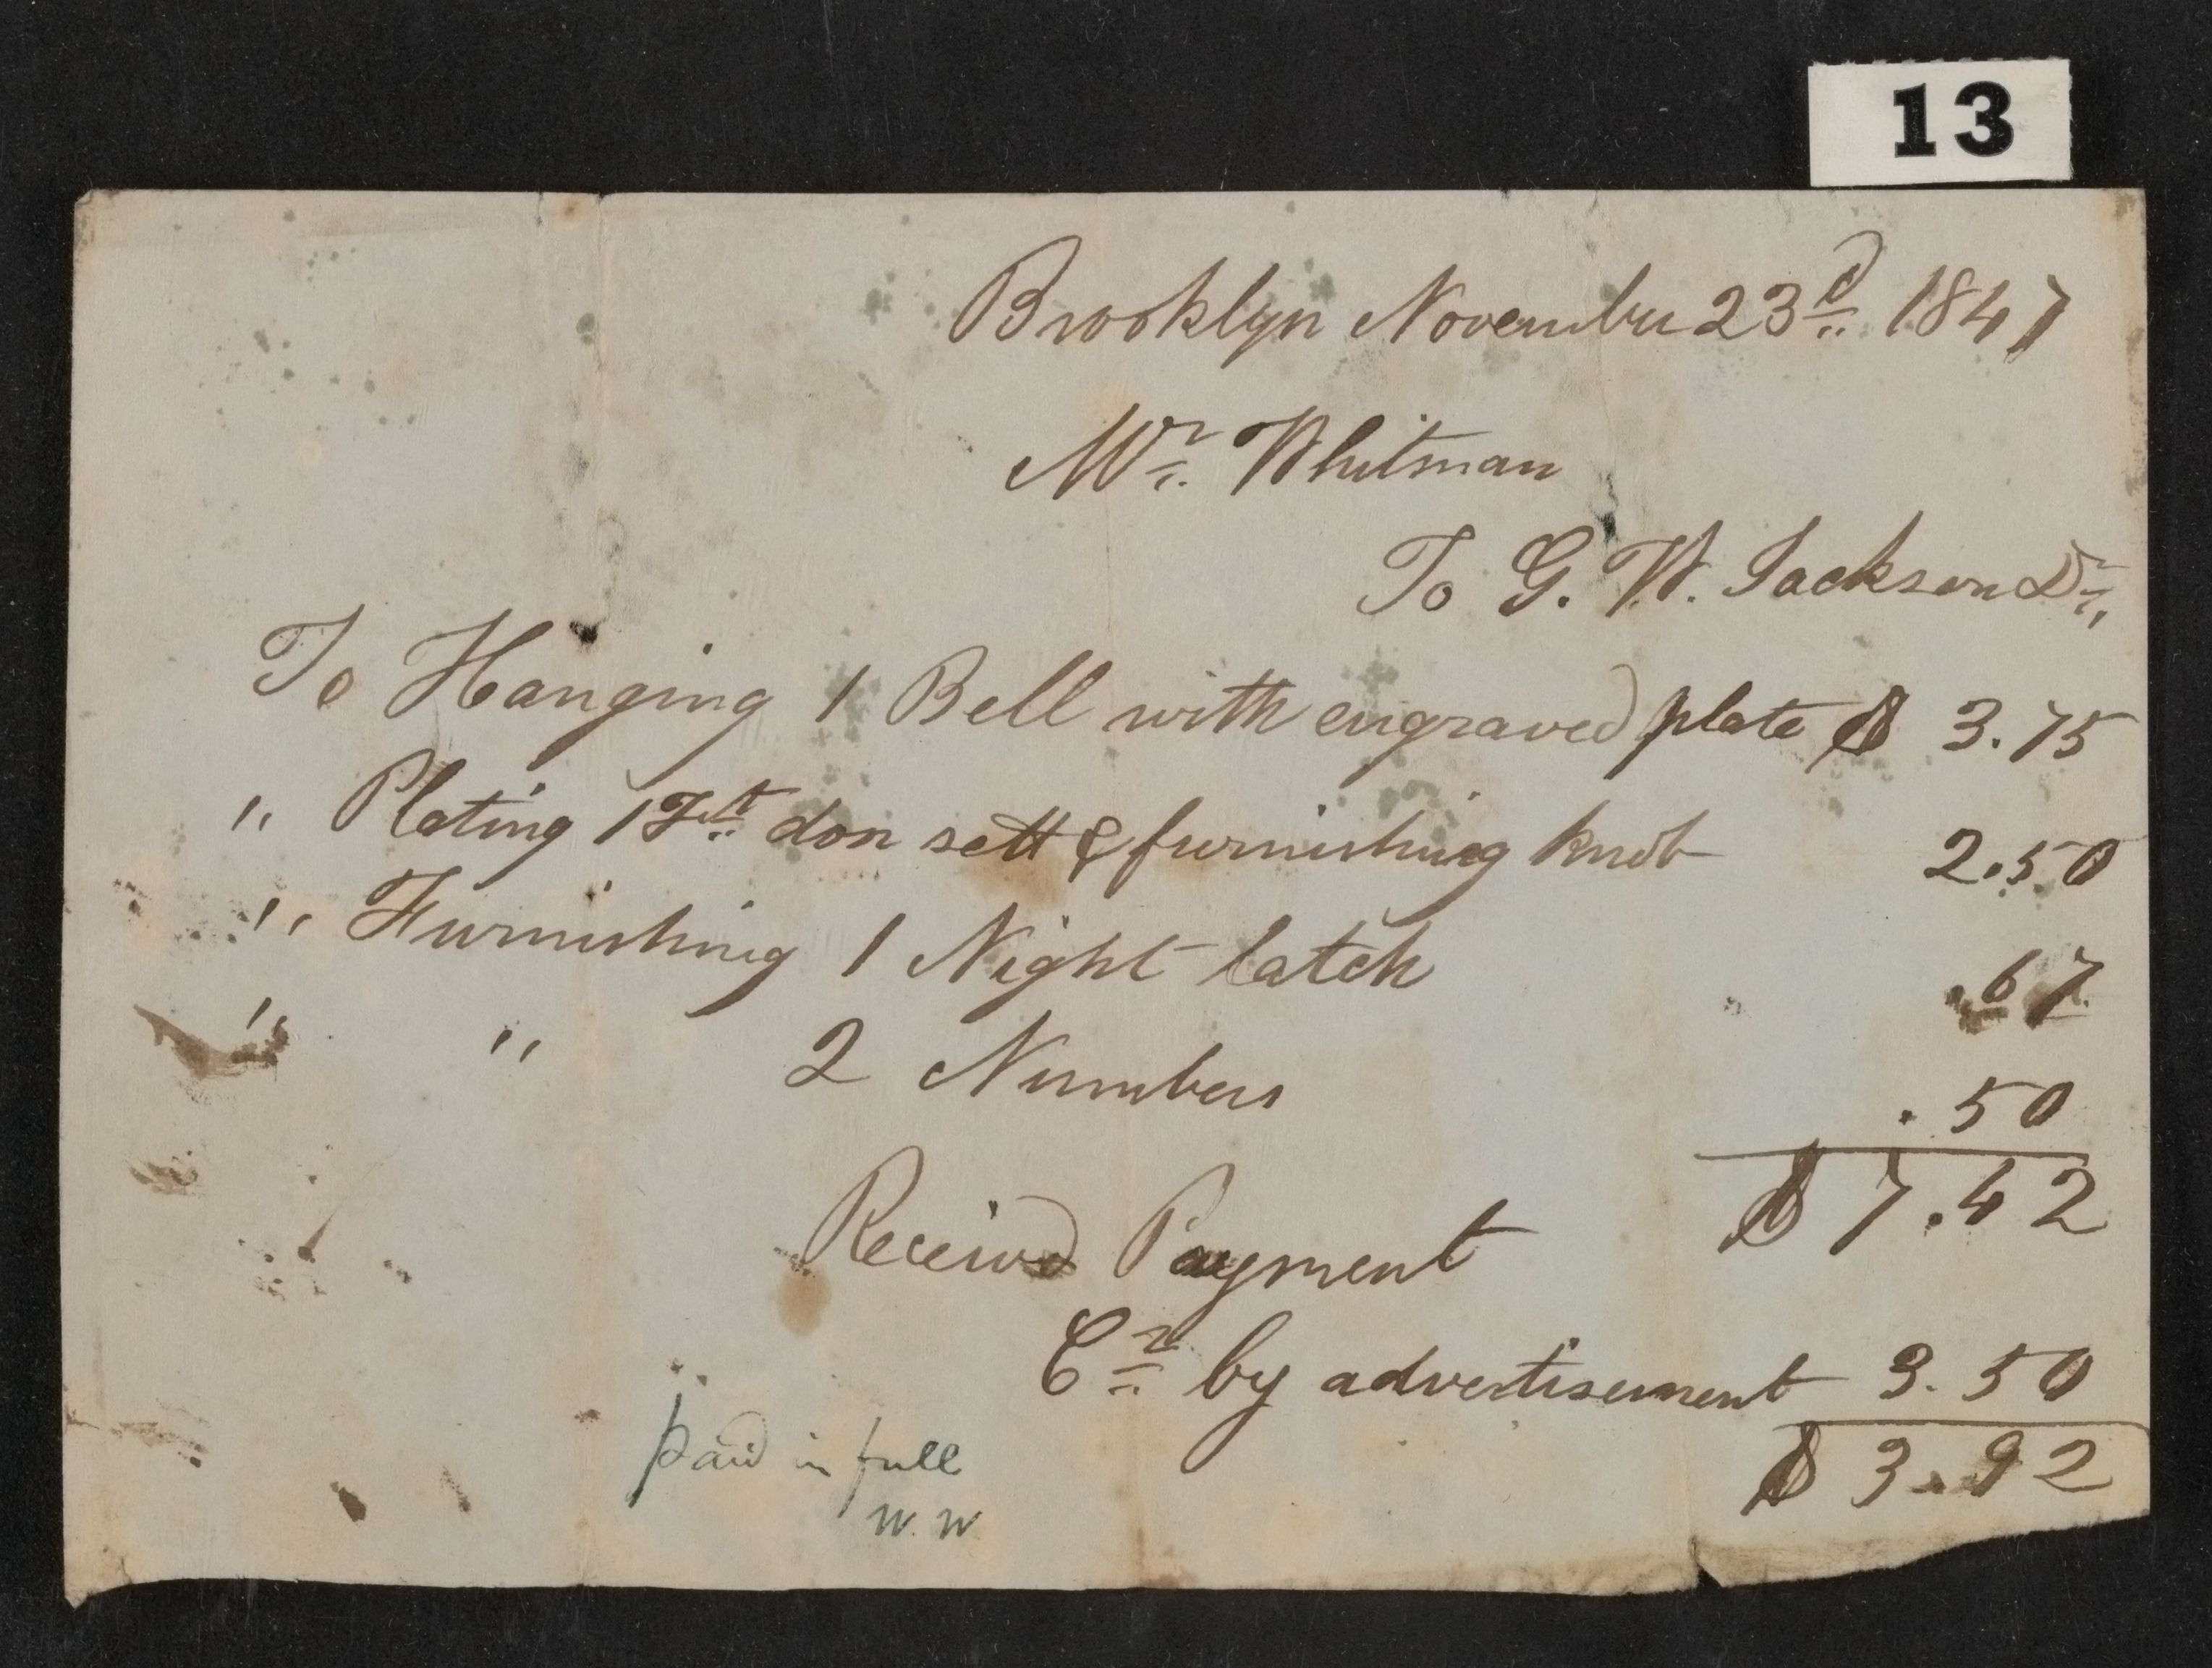 13
Brooklyn November 23d 1847
Mr. Whitman
To G. W. Jackson Dr,,
To Hanging 1 Bell with engraved plate $ 3.75
" Plating 1 Frt don sett & furnishing knob 2.50
" Furnishing 1 Night latch .67
" " 2 Numbers .50
$ 7.42
Received Payment
Cr by advertisement 3.50
$ 3.92
paid in full
W. W.